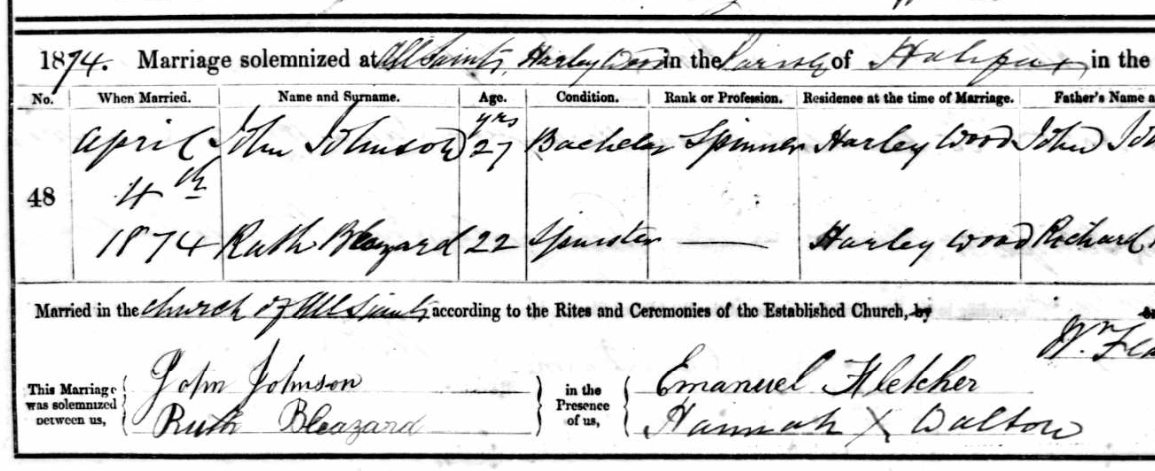 1874. Marriage solemnized at All Saints, Harley Wood in the Parish of Halifax in the
No. When Married. Name and Surname. Age. Condition. Rank or Profession. Residence at the time of Marriage. Father's Name a
yrs
April John Johnson 27 Bachelor Spinner Harley Wood John Joh
48 4th
1874 Ruth Bleazard 22 Spinster — Harley Wood Richard
Married in the church of All Saints according to the Rites and Ceremonies of the Established Church, by
Wm
This Marriage was solemnized between us, John Johnson in the Presence of us, Emanuel Fletcher
Ruth Bleazard Hannah X Dalton